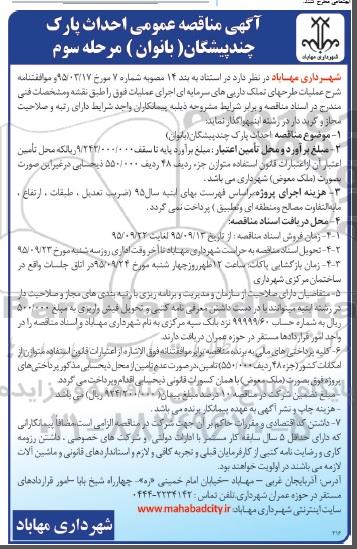 آگهی مناقصه عمومی احداث پارک
چندپیشگان( بانوان ) مرحله سوم
شهرداری مهاباد
شهـرداری مهـاباد در نظر دارد در استناد به بند ۱۴ مصوبه شماره ۷ مورخ ۹۵/۰۳/۱۷و موافقتنامه
شرح عملیات طرحهای تملک دارایی های سرمایه ای اجرای عملیات فوق را طبق نقشه ومشخصات فنی
مندرج در اسناد مناقصه و برابر شرایط مشروحه ذیلبه پیمانکاران واجد شرایط دارای رتبه و صلاحیت
مجاز و گرید دار در رشته ابنیهواگذار نماید:
۱- موضوع مناقصه: احداث پارک چندپیشگان(بانوان)
۲- مبلغ برآورد و محل تأمین اعتبار : مبلغ برآورد پایه تا سقف ۹/۲۴۲/۰۰۰/۰۰۰ریالکه محل تأمین
اعتبار آن ازاعتبارات قانون استفاده متوازن جزء ردیف ۴۸ ردیف ۵۵۰/۰۰۰ ذیحسابی درغیراین صورت
بصورت (ملک معوض) شهرداری می باشد .
۳- هزینه اجرای پروژه:براساس فهرست بهای ابنیه سال۹۵ (ضریب تعدیل ، طبقات ، ارتفاع ،
مابه‌التفاوت مصالح ومنطقه ای وتطبیق ) پرداخت نمی گردد .
۴- محل دریافت اسناد مناقصه:
۴-۱- زمان فروش اسناد مناقصه : از تاریخ ۹۵/۰۹/۱۳ لغایت ۹۵/۰۹/۲۲
۴-۲- تحویل اسناد مناقصه به حراست شهرداری مهـابـاد تا آخر وقت اداری روز سه شنبه مورخ ۹۵/۰۹/۲۳
۴-۳- زمان بازگشایی پاکات: ساعت ۱۲ظهرروزچهار شنبه مورخ ۹۵/۰۹/۲۴در اتاق جلسات واقع در
ساختمان مرکزی شهرداری
۵- متقاضیان دارای صلاحیت از سازمان و مدیریت و برنامه ریزی با رتبه بندی های مجاز و صلاحیت دار
در رشته ابنیه میتوانند با در دست داشتن معرفی نامه کتبی و تحویل فیش واریزی به مبلغ ۵۰۰/۰۰۰
ریال به شماره حساب ۹۹۹۹۹۶۰ نزد بانک سپه مرکزی به نام شهرداری مهـابـاد و اسناد مناقصه را در
واحد امور قراردادها مستقر در حوزه عمران دریافت دارند.
۶- کلیه پرداختی های مالی به برنده مناقصه برابر موافقتنامه فوق الاشاره از اعتبارات قانون استفاده متوازن از
امکانات کشور (جزء ۴۸ ردیف ۵۵۰/۰۰۰) تأمین،در صورت عدم تأمین از محل ذیحسابی مذکور پرداختی های
پروژه فوق بصورت (ملک معوض) با همان کسورات قانونی ذیحسابی اقدام وپرداخت می گردد.
- مبلغ تضمین شرکت در مناقصه ۱۰ درصد مبلغ پیمان( ۹۲۴/۲۰۰/۰۰۰ ریال) می باشد.
- هزینه چاپ و نشر آگهی به عهده پیمانکار برنده می باشد.
۷- داشتن کد اقتصادی و مقررات حاکم برآن جهت شرکت در مناقصه الزامی است.مضافاً پیمانکارانی
که دارای حداقل ۵ سال سابقه کار مستمر با ادارات دولتی و شرکت های خصوصی ، داشتن رزومه
کاری و رضایت نامه کتبی از کارفرمایان قبلی و تجربه کافی و لازم و استانداردهای قانونی و ماشین آلات
لازمه می باشند در اولویت خواهند بود.
آدرس: آذربایجان غربی – مهاباد –خیابان امام خمینی «ره»- چهارراه شیخ بابا –امور قراردادهای
مستقر در حوزه عمران شهرداری.تلفن تماس : ۲۲۳۴۱۴۲-۰۴۴۴
سایت اینترنتی شهرداری مهاباد: www.mahabadcity.ir
شهرداری مهاباد
۳۱۶